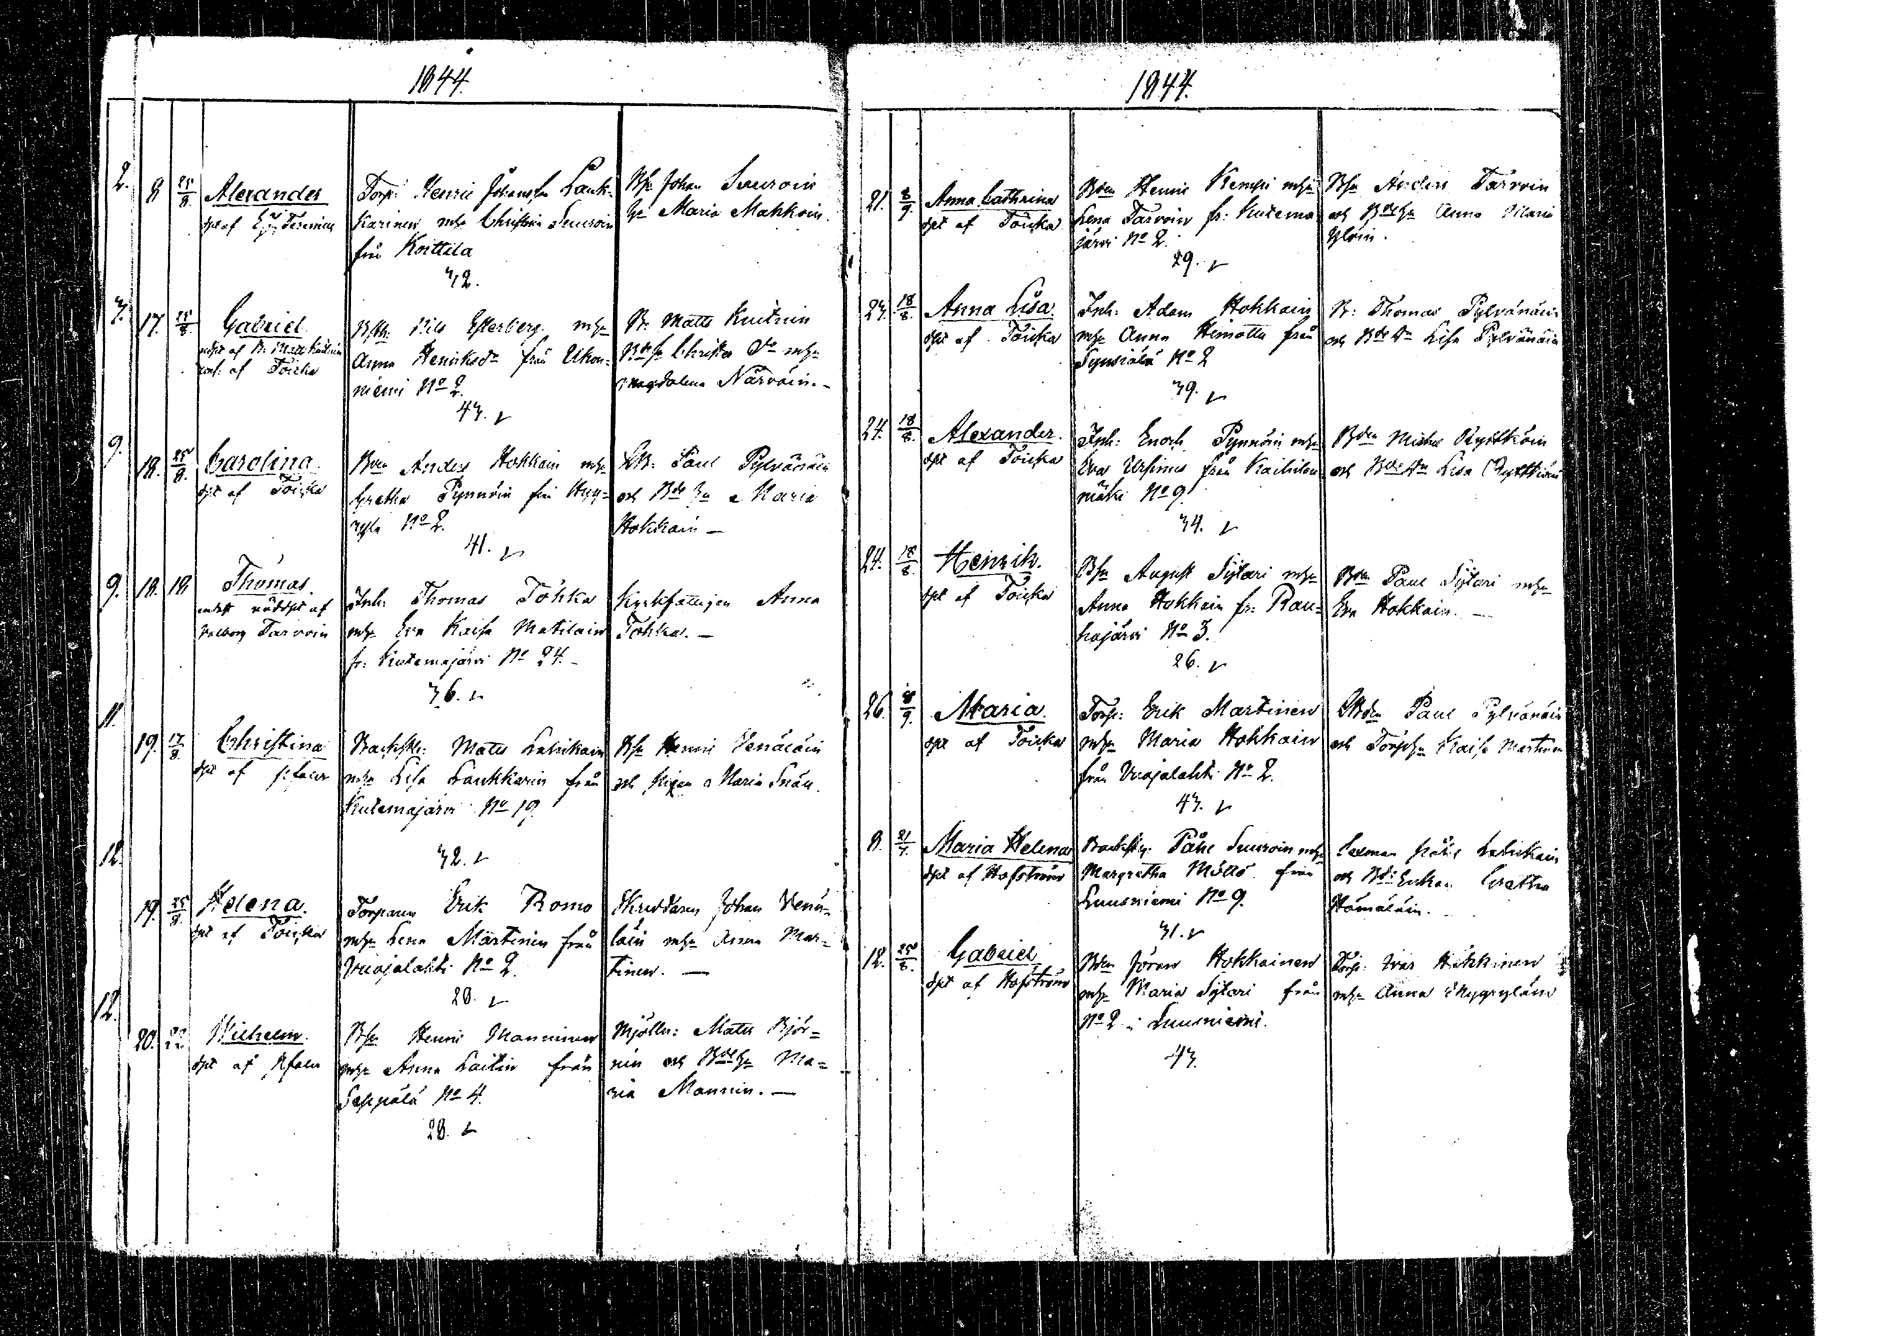 1844.
2.
8 25/8. Alexander
dpt af
Torp: Henric Johansson Lauk-
karinen mhu Christina Suuroin
från Korttila
42.
Bs. Johan Suuroin
hu Maria Makkoin.
7.
17. 25/8 Gabriel
ndpt af B. Matts Kuitnin
conf. af Töicka
Nils Esterberg mhu
Anna Henriksdr från Ukon-
niemi No 2.
43.
B. Matts Kuitnin
Christer Do mhu
Magdalena Närväin. -
9.
18. 25/8. Carolina.
dpt af Töicka
Bdn Anders Hokkain mhu
Gretha Pynnöin från Hyy-
rylä No 2.
41.
Bs. Paul Pylvänäin
och Bde hu Maria
Hokkain —
9. 18. 18 Thomas.
enskt nöddpt af
Valborg Tarvoin
Inh: Thomas Töhka
mhu Eva Kaisa Matilain
fr: Kutemajärvi No 24. -
36.
Kyrkfattigen Anna
Töhka. —
11.
19. 17/8. Christina
dpt af
Backstu: Matts Laksikain
mhu Lisa Laukkarin från
Kutemajärvi No 19.
32.
Bs Henric Venäläin
och Pigan Maria Snäll.
12.
19. 25/8. Helena.
dpt af Töicka
Torparen Erik Romo
mhu Lena Martinen från
Vuojalahti No 2.
28.
Skreddaren Johan Venä-
läin mhu Anna Mar-
tinen. —
12.
20. 22 Wilhelm.
dpt af
Bs Henric Manninen
mhu Anna Laitin från
Seppälä No 4.
28.
Mjöln: Matts Björ-
nin och Bde hu Ma-
ria Mannin. —
1844.
21. 8/9. Anna Cathrina
dpt af Töicka
Bdn Henric Kemppi mhu
Lena Tarvoin fr: Kutema
järvi No 2.
29.
Bs Anders Tarvoin
och Bde hu Anna Maria
Ylöin.
23. 18/8. Anna Lisa.
dpt af Töicka
Inh: Adam Hokkain
mhu Anna Hemottu från
Synsiälä No 2
39.
B: Thomas Pylvänäin
och Bde Lisa Pylvänäin
24. 18/8. Alexander.
dpt af Töicka
Inh: Enoch Pynnöin mhu
Eva Ursinus från
mäki No 9.
34.
Bdn Michel Ryttköin
och Lisa Ryttköin
24. 18/8. Henrik.
dpt af Töicka
Bs August Sytari mhu
Anna Hokkain fr: Rau-
hajärvi No 3.
26.
Bdn Paul Sytari mhu
Eva Hokkain. —
26. 8/9. Maria.
dpt af Töicka
Torp: Erik Martinen
mhu Maria Hokkain
från Vuojalahti No 2.
43.
Bdn Paul Pylvänäin
och Kaisa Martinen
8. 21/7. Maria Helena
dpt af Hofström
Påhl Suuroin mhu
Margretha Möttö från
Luusniemi No 9.
31.
Påhl Laksikain
och Enkan Gretha
Hämäläin.
12. 25/8. Gabriel
dpt af Hofström
Bdn Jöran Hokkainen
mhu Maria Sytari från
No 2 i Luusniemi.
43.
Torp: Ivar Häkkinen
mhu Anna